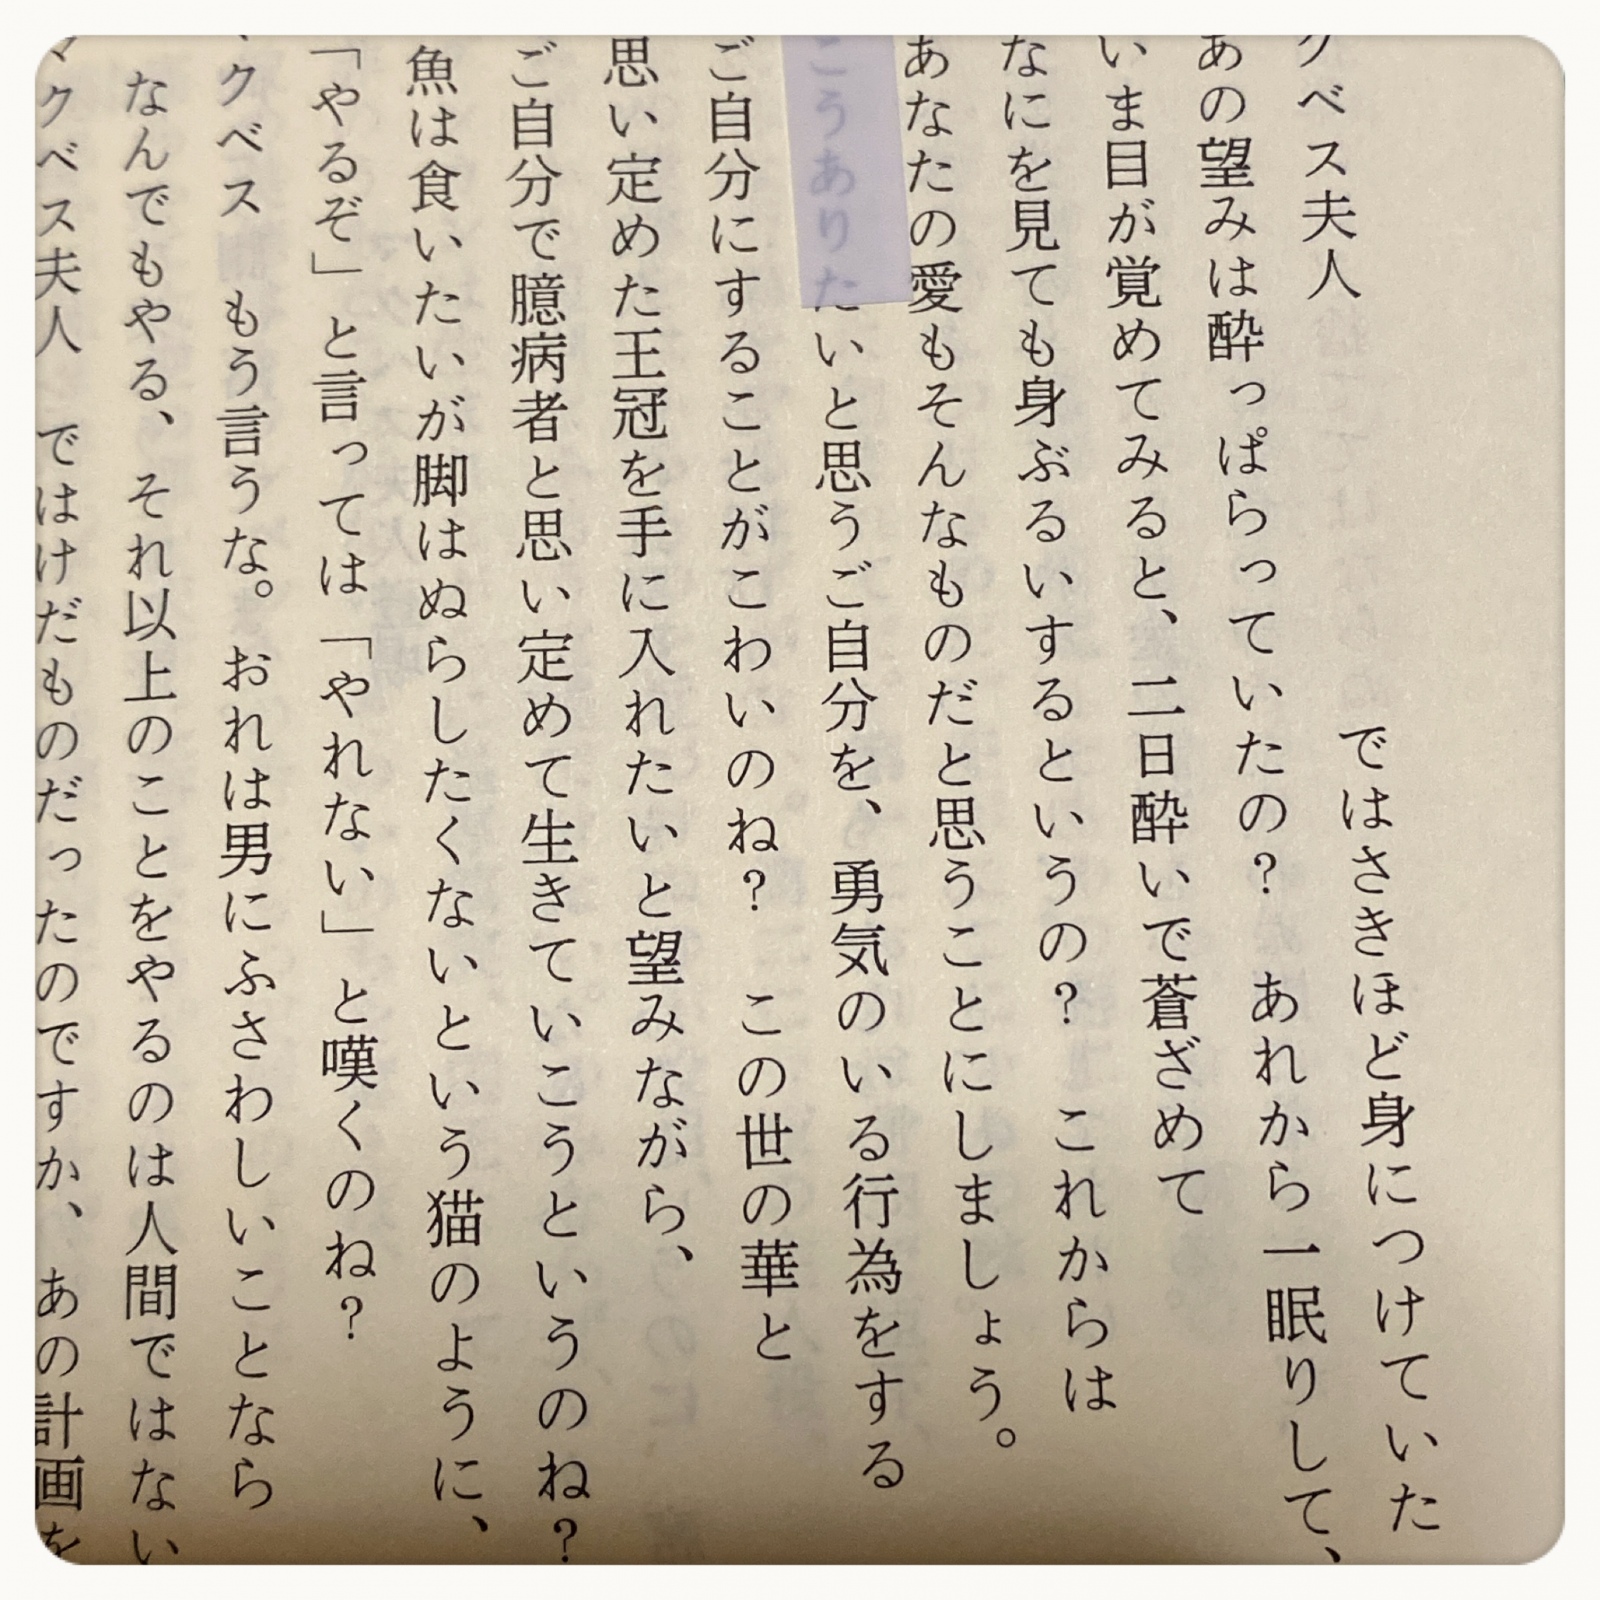 クベス夫人　ではさきほど身につけていた
あの望みは酔っぱらっていたの？　あれから一眠りして、
いま目が覚めてみると、二日酔いで蒼ざめて
なにを見ても身ぶるいするというの？　これからは
あなたの愛もそんなものだと思うことにしましょう。
こうありたいと思うご自分を、勇気のいる行為をする
ご自分にすることがこわいのね？　この世の華と
思い定めた王冠を手に入れたいと望みながら、
ご自分で臆病者と思い定めて生きていこうというのね？
魚は食いたいが脚はぬらしたくないという猫のように、
「やるぞ」と言っては「やれない」と嘆くのね？
クベス　もう言うな。おれは男にふさわしいことなら
なんでもやる、それ以上のことをやるのは人間ではない
マクベス夫人　ではけだものだったのですか、あの計画を